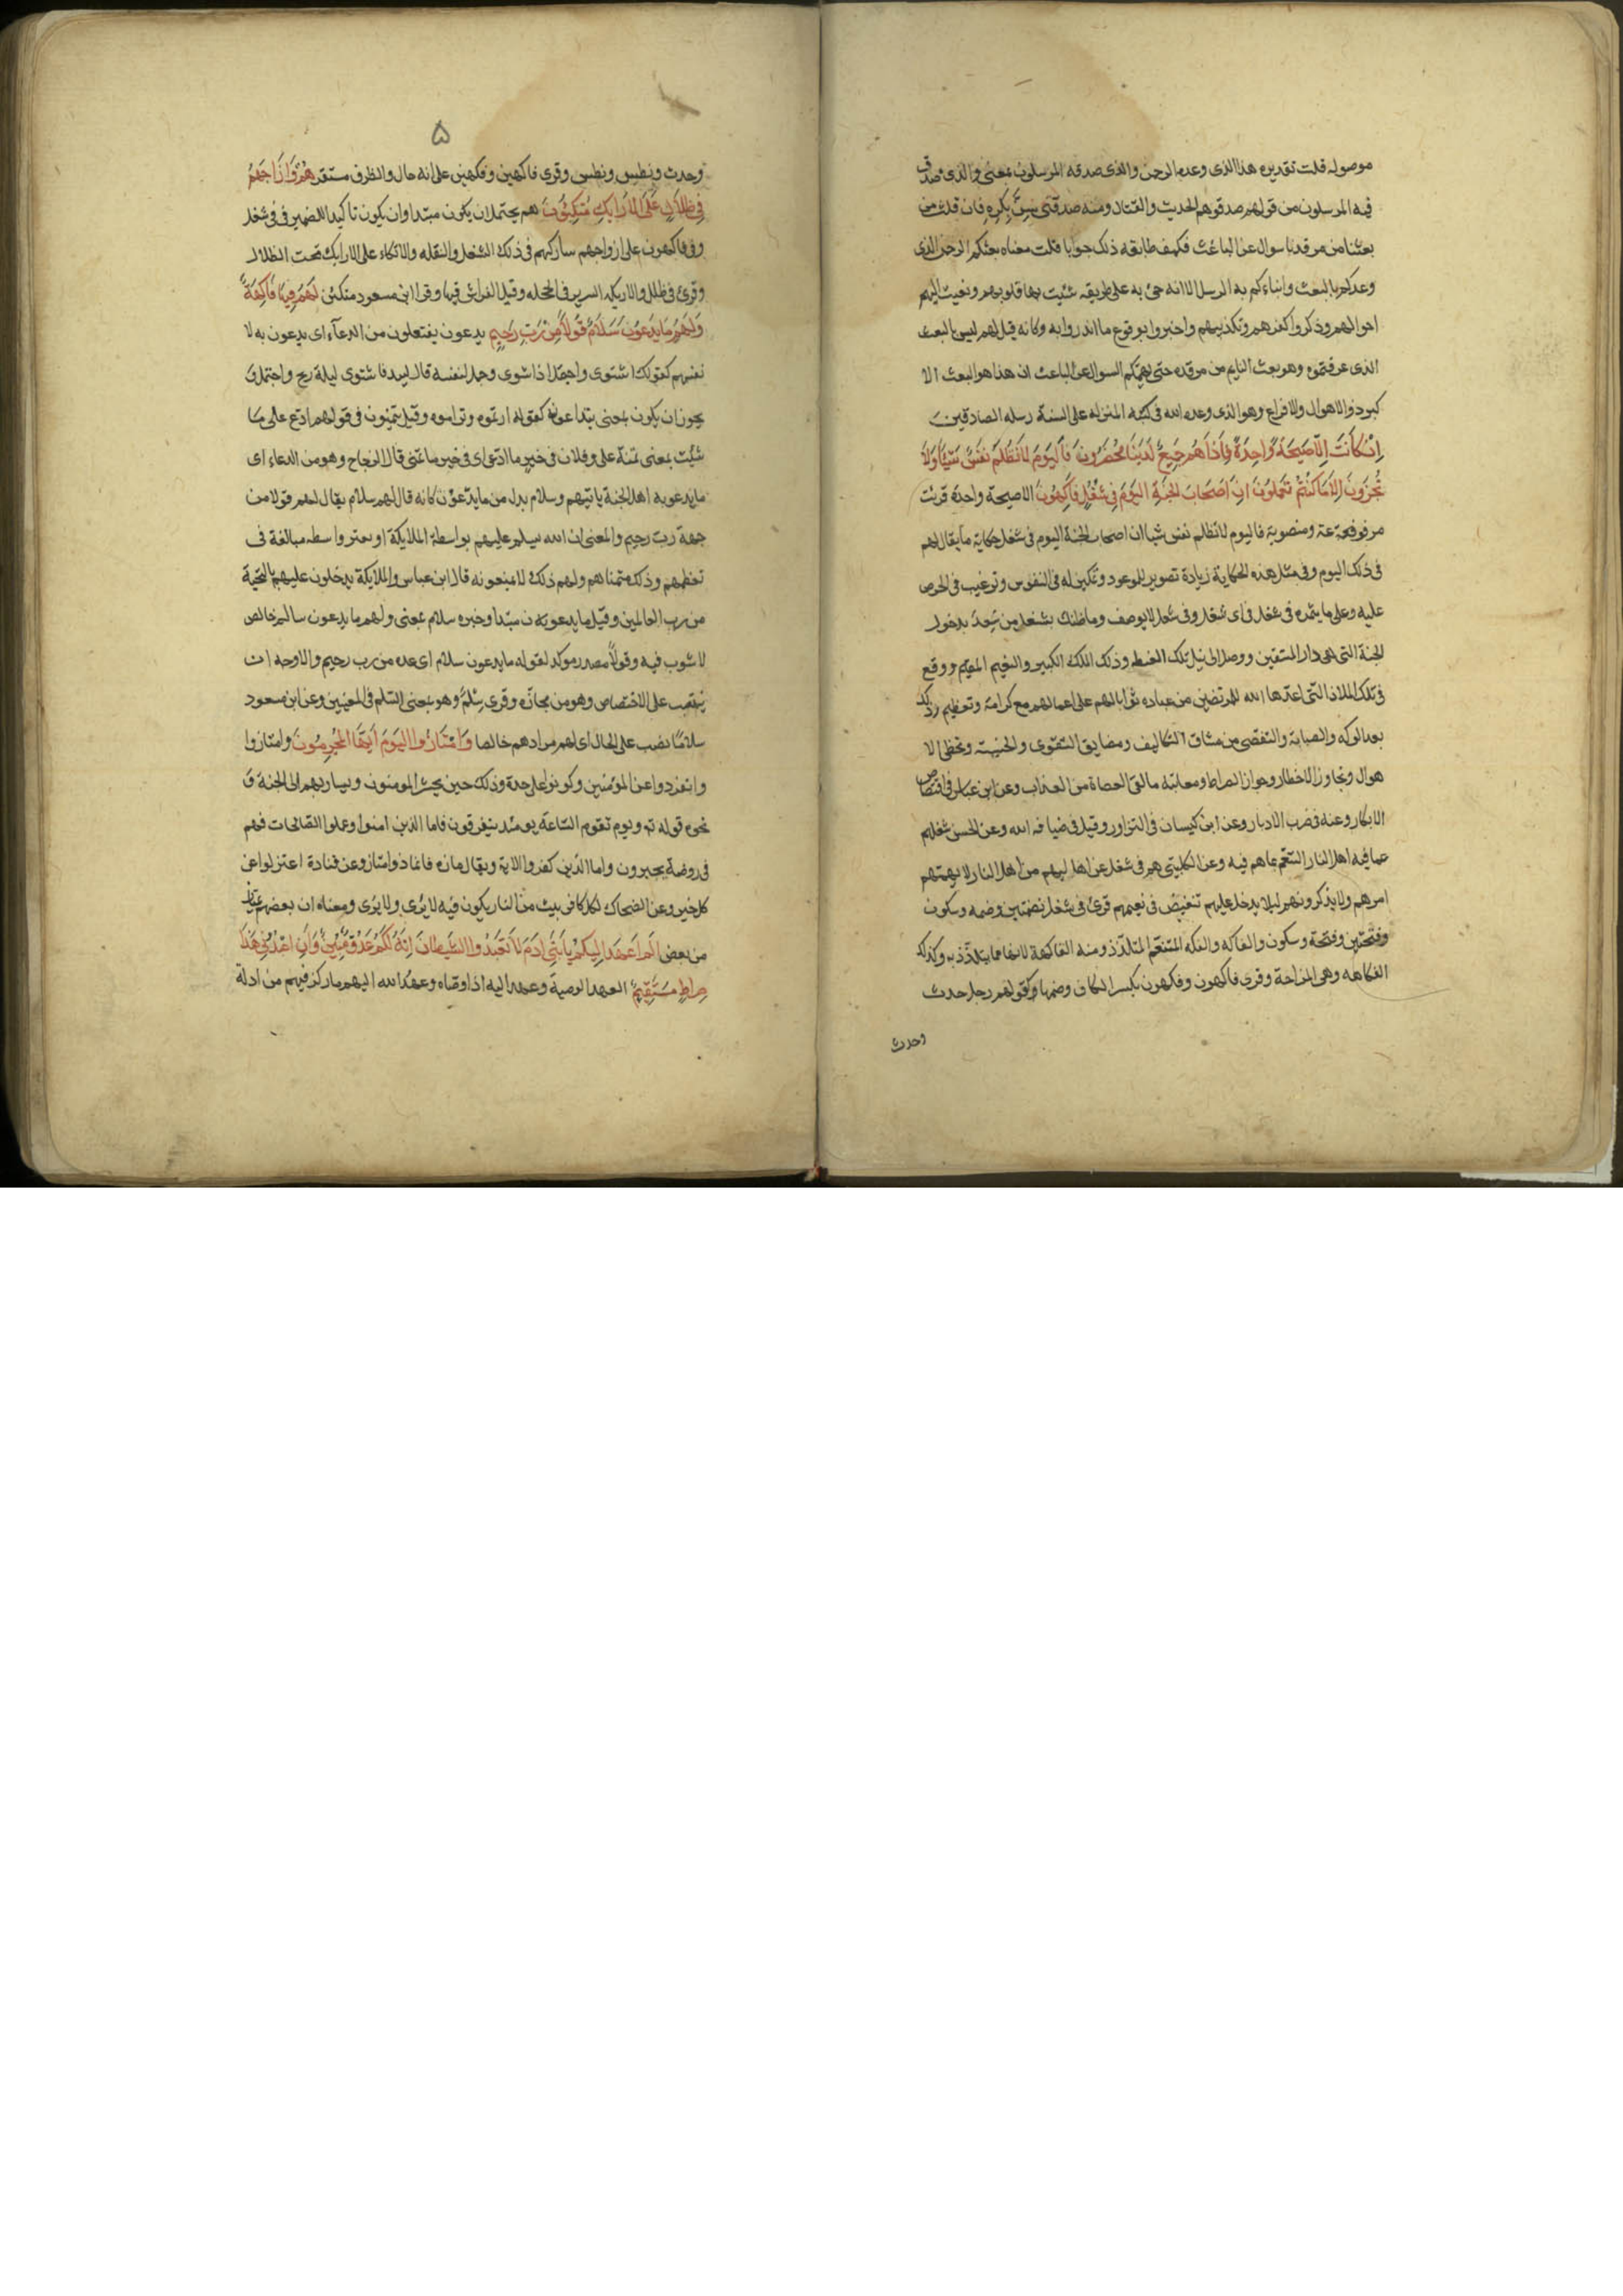 موصوله قلت تقديره هذا الذى وعده الرحمن والذى صدقه المرسلون بمعنى والذى صدق
فيه المرسلون من قولهم صدقوهم الحديث والقتال ومنه صدقنى سن بكره فان قلت من
بعثنا من مرقدنا سوال عن الباعث فكيف طابقه ذلك جوابا قلت معناه بعثكم الرحمن الذى
وعدكم بالبعث وانباءكم به الرسل الا انه جئ به على طريقه شئت بها قلوبهم ونعيت اليهم
احوالهم وذكروا كفرهم وتكذيبهم واخبروا بوقوع ما انذروا به وكانه قيل لهم ليس بالبعث
الذى عرفتموه وهو بعث النايم من مرقده حتى يهمكم السوال عن الباعث ان هذا هو البعث الا
كبر ذو الاهوال والافزاع وهو الذى وعده الله فى كتبه المنزله على السنة رسله الصادقين
اِنْ كَانَتْ اِلَّا صَيْحَةً وَاحِدَةً فَاِذَا هُم جَمِيعٌ لَدَيْنَا مُحْضَرُونَ فَالْيَوْمَ لَا تُظْلَمُ نَفْسٌ شَيْئًا وَلَا
تُجْزَوْنَ اِلَّا مَا كُنْتُمْ تَعْمَلُونَ اِنَّ اَصْحَابَ الجَنَّةِ اليَوْمَ فِى شُغُلٍ فَاكِهُونَ الا صيحة واحدة قرئت
مرفوعة ومنصوبة فاليوم لا تظلم نفس شيا ان اصحاب الجنة اليوم فى شغل حكاية ما يقال لهم
فى ذلك اليوم وفى مثل هذه الحكاية زيادة تصوير للموعود وتمكين له فى النفوس وترغيب فى الحرص
عليه وعلى ما يثمره فى شغل فى اى شغل وفى شغل لا يوصف وما ظنك بشغل من سعد بدخول
الجنة التى هى دار المتقين ووصل الى نيل تلك الغبطه وذلك الملك الكبير والنعيم المقيم ووقع
فى تلك الملاذ التى اعدها الله للمرتضين من عباده ثوابا لهم على اعمالهم مع كرامة وتعظيم وذلك
بعد الوله والصبابة والتفصى من مشاق التكاليف ومضايق التقوى والخشية وتخطى الا
هوال وتجاوز الاخطار وجواز الصراط ومعاينة ما لقى العصاة من العذاب وعن ابن عباس فى افتضاض
الابكار وعنه فى ضرب الاوتار وعن ابن كيسان فى التزاور وقيل فى ضيافه الله وعن الحسن شغلهم
عما فيه اهل النار التنعم بما هم فيه وعن الكلبى هم فى شغل عن اهاليهم من اهل النار لا يهمهم
امرهم ولا يذكرونهم ليلا يدخل عليهم تنغيص فى نعيمهم قرئ فى شغل بضمتين وضمه وسكون
وفتحتين وفتحة وسكون والفاكه والفكه المتنعم المتلذذ ومنه الفاكهة لانها مما يتلذذ به وكذلك
الفكاهه وهى المزاحة وقرى فاكهون وفكهون بكسر الكاف وضمها كقولهم رجل حدث
وحدث
۵
وحدث ونطس ونطس وقرى فاكهين وفكهين على انه حال والظرف مستقر هُمْ وَاَزْوَاجُهُمْ
فِى ظِلَالٍ عَلَى الْاَرَايِكِ مُتَّكِئُونَ هم يحتمل ان يكون مبتدا وان يكون تاكيدا للضمير فى فى شغل
وفى فاكهون على ان ازواجهم ساركهم فى ذلك الشغل والتفكه والاتكاء على الارايك تحت الظلال
وقرئ فى ظلل والاريكه السرير فى الحجله وقيل الفراش فيها وقرا ابن مسعود متكئن لَهُمْ فِيهَا فَاكِهَةٌ
وَلَهُمْ مَا يَدَّعُونَ سَلَامٌ قَوْلًا مِنْ رَبٍّ رَحِيمٍ يدعون يفتعلون من الدعاء اى يدعون به لا
نفسهم كقولك اشتوى واجتمل اذا شوى وجمل لنفسه قال لبيد فاشتوى ليلة ريح واجتمل و
يجوز ان يكون بمعنى يتداعونه كقوله ارتموه وتراموه وقيل يتمنون فى قولهم ادع على ما
شئت بمعنى تمنه على وفلان فى خير ما ادعى اى فى خير ما تمنى قال الزجاج وهو من الدعاء اى
ما يدعو به اهل الجنة ياتيهم وسلام بدل من ما يدعون كانه قال لهم سلام يقال لهم قولا من
جهة رب رحيم والمعنى ان الله يسلم عليهم بواسطة الملايكة او بغير واسطه مبالغة فى
تعظيمهم وذلك متمناهم ولهم ذلك لا يمنعونه قال ابن عباس والملايكة يدخلون عليهم بالتحية
من رب العالمين وقيل ما يدعون مبتدا وخبره سلام بمعنى ولهم ما يدعون سالم خالص
لا شوب فيه وقولا مصدر موكد لقوله ما يدعون سلام اى عده من رب رحيم والاوجه ان
ينتصب على الاختصاص وهو من مجازه وقرى سلم وهو بمعنى السلم فى المعنيين وعن ابن مسعود
سلاما نصب على الحال اى لهم مرادهم خالصا وَامْتَازُوا الْيَوْمَ اَيُّهَا الْمُجْرِمُونَ وامتازوا
وانفردوا عن المؤمنين وكونوا على حدة وذلك حين يحشر المومنون ويساربهم الى الجنة و
نحوه قوله تع ويوم تقوم الساعة يومئذ يتفرقون فاما الذين امنوا وعملوا الصالحات فهم
فى روضة يحبرون واما الذين كفروا الاية ويقال مازه فانماز وامتاز وعن قتادة اعتزلوا عن
كل خير وعن الضحاك لكل كافر بيت من النار يكون فيه لا يرى ولا يرى ومعناه ان بعضهم يمتاز
من بعض اَلَمْ اَعْهَدْ اِلَيْكُمْ يَا بَنِى ادَمَ لَا تَعْبُدُوا الشَّيْطَانَ اِنَّهُ لَكُمْ عَدُوٌّ مُبِينٌ وَاَنِ اعْبُدُونِى هَذَا
صِرَاطٌ مُسْتَقِيمٌ العهد الوصية وعهد اليه اذا وصاه وعهد الله اليهم ما ركز فيهم من ادلة